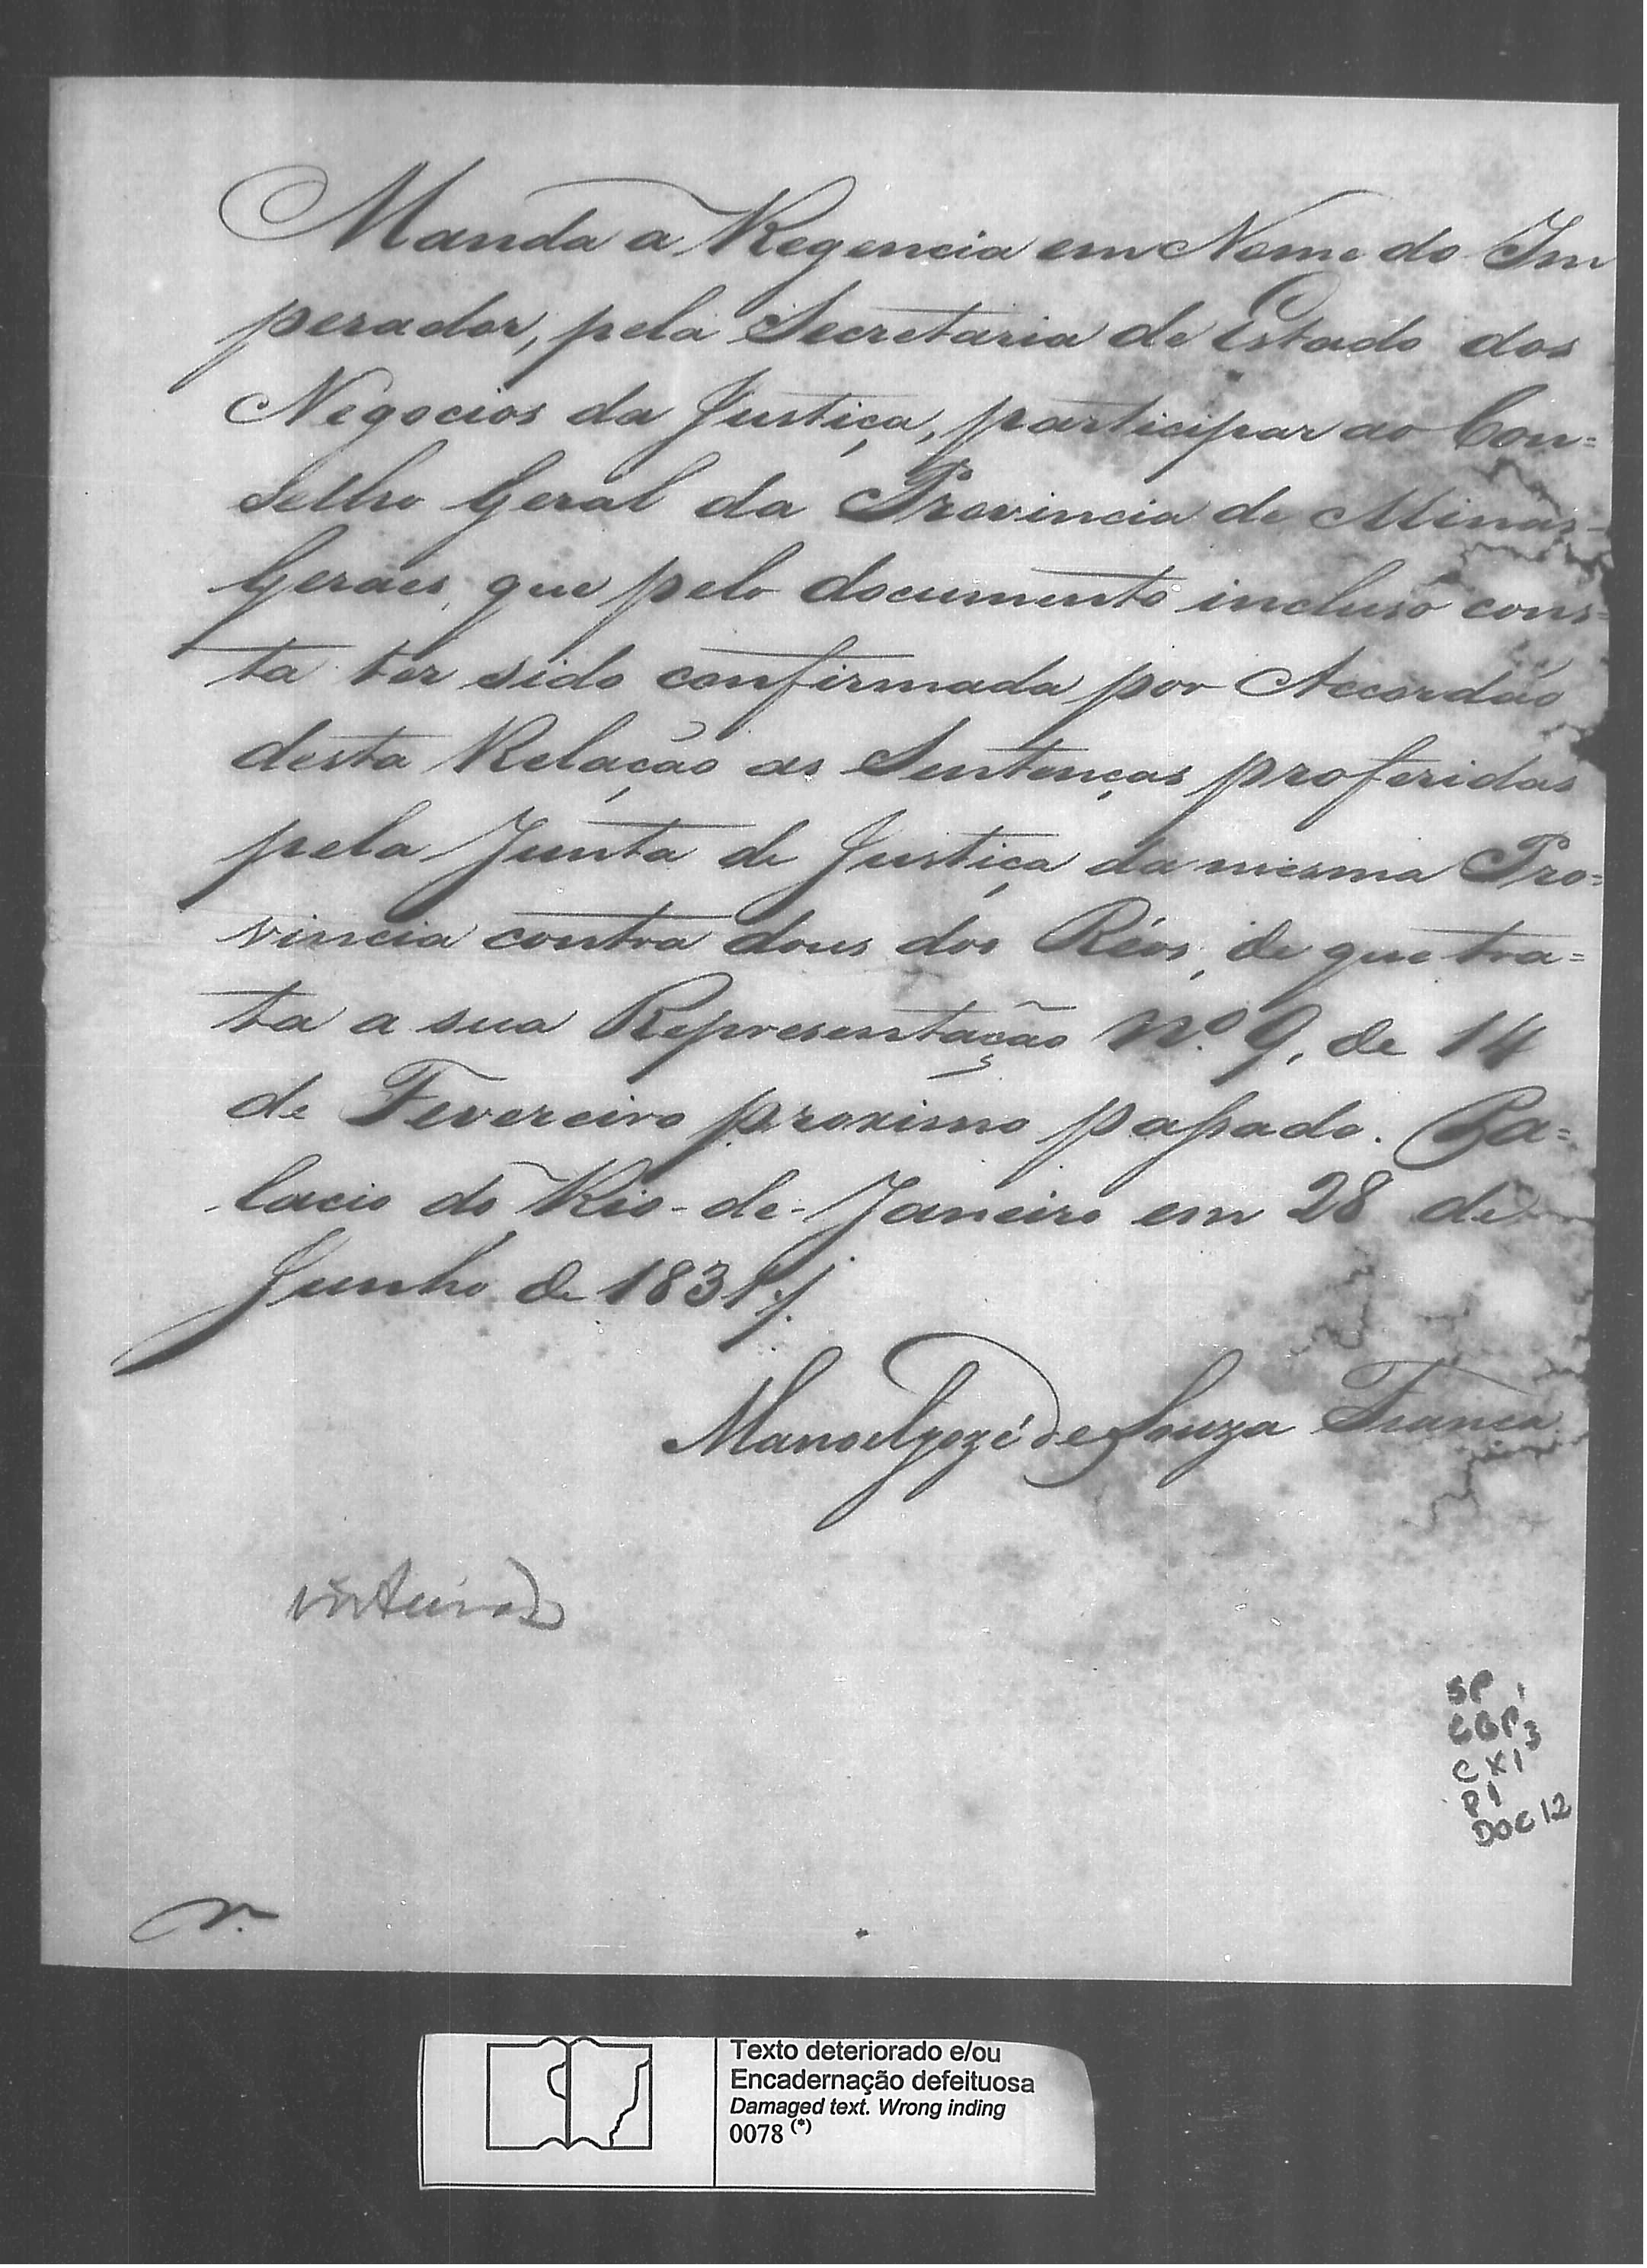 Manda a Regencia em Nome do Im
perador, pela Secretaria de Estado dos
Negocios da Justiça, participar ao Con=
selho Geral da Provincia de Minas-
Geraes, que pelo documento incluso cons=
ta ter sido confirmada por Accordão
desta Relação as Sentenças proferidas
pela Junta de Justiça da mesma Pro=
vincia contra dous dos Réos, de que tra=
ta a sua Representação Nº 9, de 14
de Fevereiro proximo passado. Pa=
lacio do Rio-de-Janeiro em 28 de
Junho de 1831
Manoel José de Souza França
SP 1
CGP 3
CX 1
P1
DOC 12
Texto deteriorado e/ou
Encadernação defeituosa
Damaged text. Wrong inding
0078 (*)